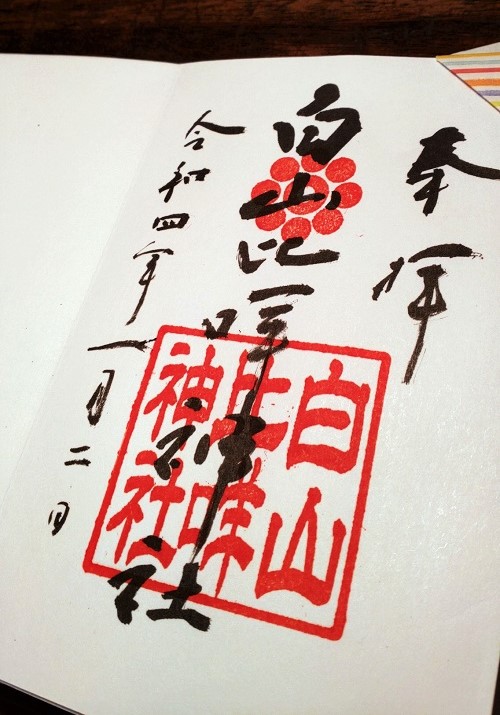 奉拝
白山比咩神社
令和四年一月二日
白山
比咩
神社